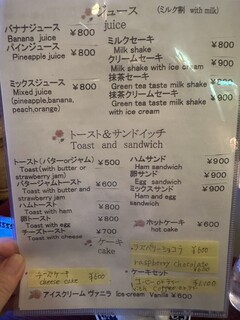 ジュース (ミルク割 with milk)
juice
バナナジュース ¥800
Banana juice
パインジュース ¥800
Pineapple juice
ミックスジュース ¥800
Mixed juice
(pineapple,banana,
peach,orange)
ミルクセーキ ¥800
Milk shake
クリームセーキ ¥900
Milk shake with ice cream
抹茶セーキ ¥800
Green tea taste milk shake
抹茶クリームセーキ ¥900
Green tea taste milk shake
with ice cream
トースト&サンドイッチ
Toast and sandwich
トースト(バターorジャム) ¥500
Toast(with butter or
strawberry jam)
バタージャムトースト ¥600
Toast with butter and
strawberry jam
ハムトースト ¥700
Toast with ham
卵トースト ¥600
Toast with egg
チーズトースト ¥700
Toast with cheese
ハムサンド ¥900
Ham sandwich
卵サンド ¥900
Egg sandwich
ミックスサンド ¥900
Ham and egg
sandwich
ホットケーキ ¥600
hot cake
ケーキ
cake
チーズケーキ ¥600
cheese cake
¥600
raspberry chocolate
ケーキセット
with coffee
アイスクリーム ヴァニラ Ice cream Vanilla ¥600